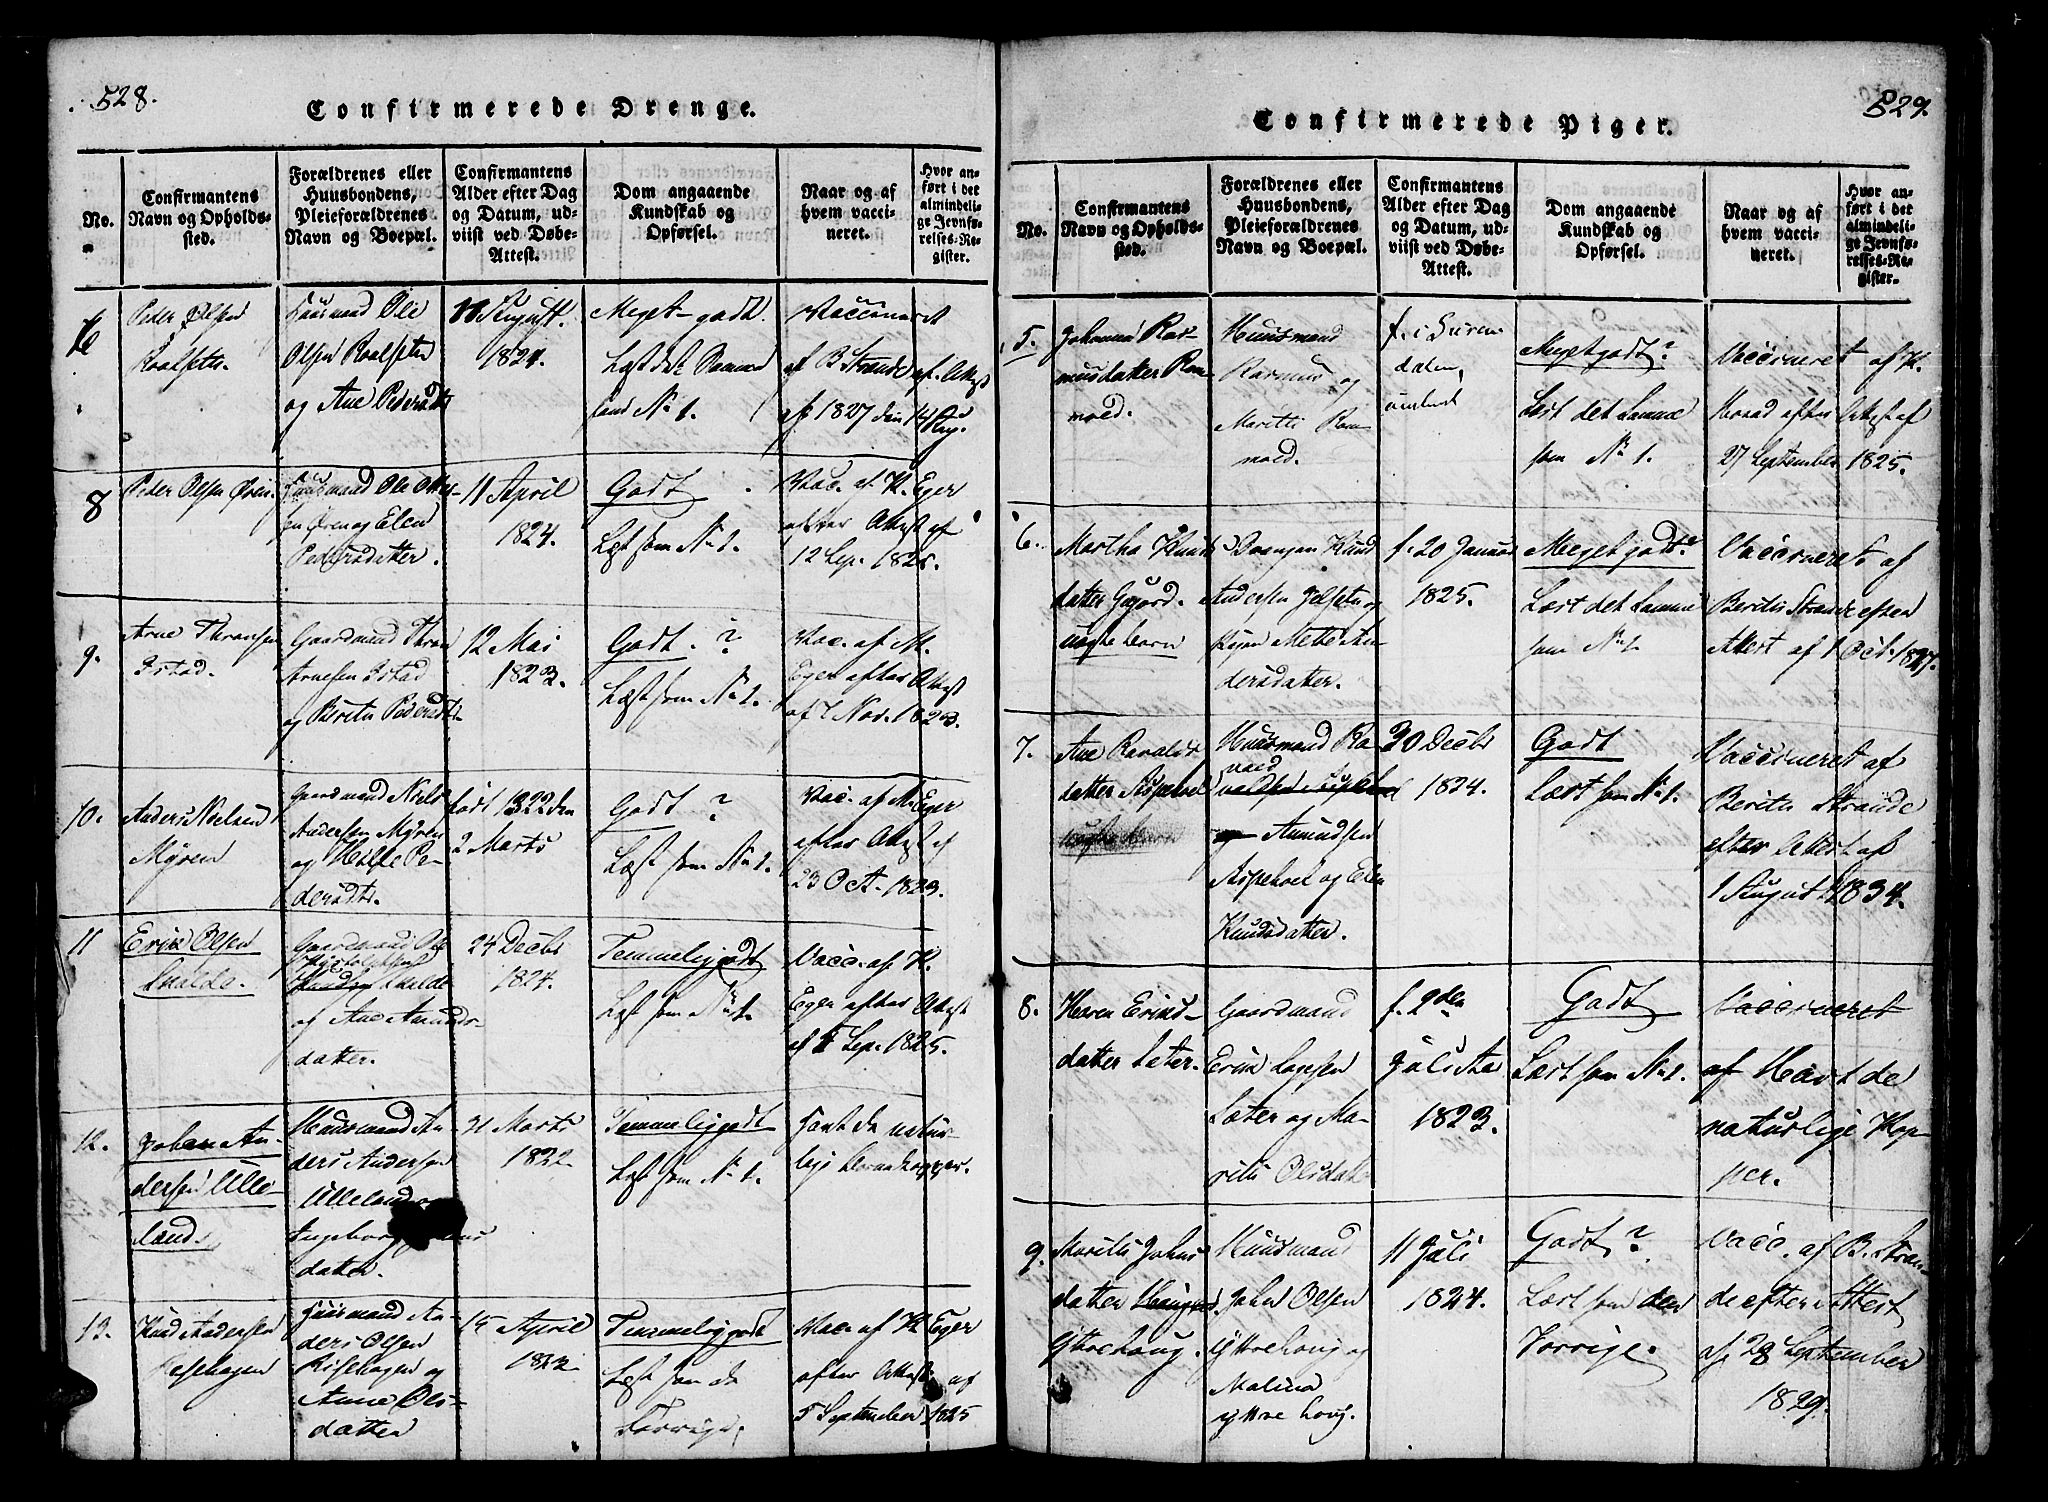 528.
Confirmerede Drenge.
No.
Confirmantens
Navn og Opholds-
sted.
Forældrenes eller
Huusbondens,
Pleieforældrenes
Navn og Boepæl.
Confirmantens
Alder efter Dag
og Datum, ud-
viist ved Døbe-
Attest.
Dom angaaende
Kundskab og
Opførsel.
Naar og af
hvem vacci-
neret.
Hvor an-
ført i det
almindeli-
ge Jevnfø-
relses-Re-
gister.
Peder Olsen
Huusmand Ole
Olsen
og Ane Pedersdtr
August
1824.
Meget godt.
Læst det Samme
som No 1.
Vaccineret
af B. Strande af. Attest
af 1827 den 14 Aug.
8
Peder Olsen Øren.
Huusmand Ole
sen Øren og Elen
Pedersdatter.
11 April
1824.
Godt
Læst som No 1.
Vac. af K. Eger
efter Attest af
12 Sep. 1825.
9.
Arne Thronsen
Istad.
Gaardmand Thron
Arnesen Istad
og Beritte Pedersdtr
12 Mai
1823.
Godt. ?
Læst som No 1.
Vac. af K.
Eger efter Attest
af 1 Nov. 1823.
10.
Anders Nielsen
Myren
Gaardmand Niels
Andersen Myren
og Pe-
dersdtr.
født 1822 den
2 Marts
Godt ?
Læst som No 1.
Vac. af K. Eger
efter Attest af
23 Oct. 1823.
11
Erik Olsen
Gaardmand Ole
og Ane Amunds-
datter.
24 Decbr
1824.
Temmelig godt
Læst som No 1.
Vacc. af K.
Eger efter Attest
af Sep. 1825.
12.
Johan An-
dersen Ulle-
land.
Huusmand An-
ders Andersen
Ulleland og
Ingeborg
datter.
21 Marts
1822
Temmelig godt
Læst som No 1.
havt de natur-
lige
13.
Knud Andersen
Huusmand An-
ders Olsen
og
Anne Ols-
datter
15 April
1822
Temmelig godt
Læst som de
Forrige.
Vac. af K. Eger
efter Attest af
5 September 1825
529.
Confirmerede Piger.
No.
Confirmantens
Navn og Opholds-
sted.
Forældrenes eller
Huusbondens,
Pleieforældrenes
Navn og Boepæl.
Confirmantens
Alder efter Dag
og Datum, ud-
viist ved Døbe-
Attest.
Dom angaaende
Kundskab og
Opførsel.
Naar og af
hvem vacci-
neret.
Hvor an-
ført i det
almindeli-
ge Jevnfø-
relses-Re-
gister.
5.
Johanne Ras-
musdatter Ro-
moed.
Huusmand
Rasmus og
Maritte Ro-
moed.
f. i Suren-
dalen,
Meget godt ?
Læst det Samme
som No 1.
Vaccineret af K.
efter Attest af
27 September 1825.
6.
Martha Knuds
datter
uægte barn
Drengen Knud
Andersen Jelseth og
Pigen Mette An-
dersdatter.
f. 20 Januar
1825.
Meget godt ?
Læst det Samme
som No 1.
Vaccineret af
Berite Strande efter
Attest af 1 Oct. 1827.
7.
Ane Ravalds
datter Aspehoel
Huusmand Ra-
vald
Amundsen
Aspehoel og Elen
Knudsdatter.
30 Decbr
1824.
Godt
Læst som No 1.
Vaccineret af
Berite Strande
efter Attest af
1 August 1834.
8.
Karen Eriks-
datter Sæter.
Gaardmand
Erik
Sæter og Ma-
ritte Olsdatr
f. 2den
Juli Aa
1823.
Godt
Læst som No 1.
Vaccineret
af Havt de
naturlige Kop-
per.
9.
Maritte Johns
datter
Yttrehoug.
Huusmand
John Olsen
Yttrehoug og
Malina
Yttrehoug.
11 Juli
1824.
Godt ?
Læst som den
Forrige.
Vacc. af B. Stran-
de efter Attest
af 28 September
1829.